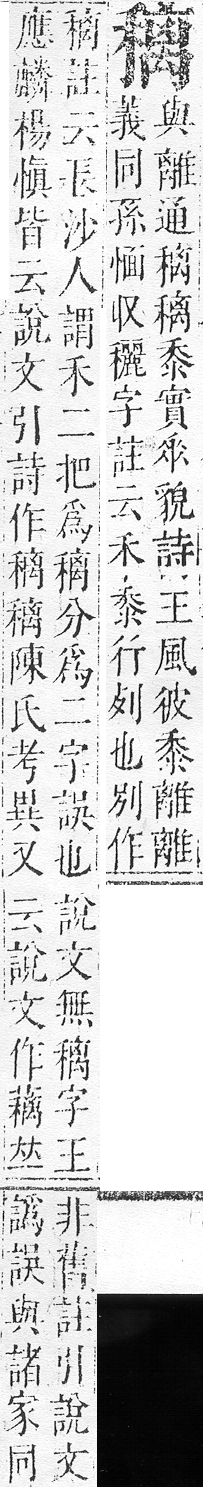 䅻與離通䅻䅻黍實衆貌詩王風彼黍離離
義同孫愐収穲字註云禾黍行列也別作
䅻註云長沙人謂禾二把爲䅻分爲二字誤也說文無䅻字王
應麟楊愼皆云說文引詩作䅻䅻陳氏考異又云說文作𠀤
非舊註引說文
譌誤與諸家同